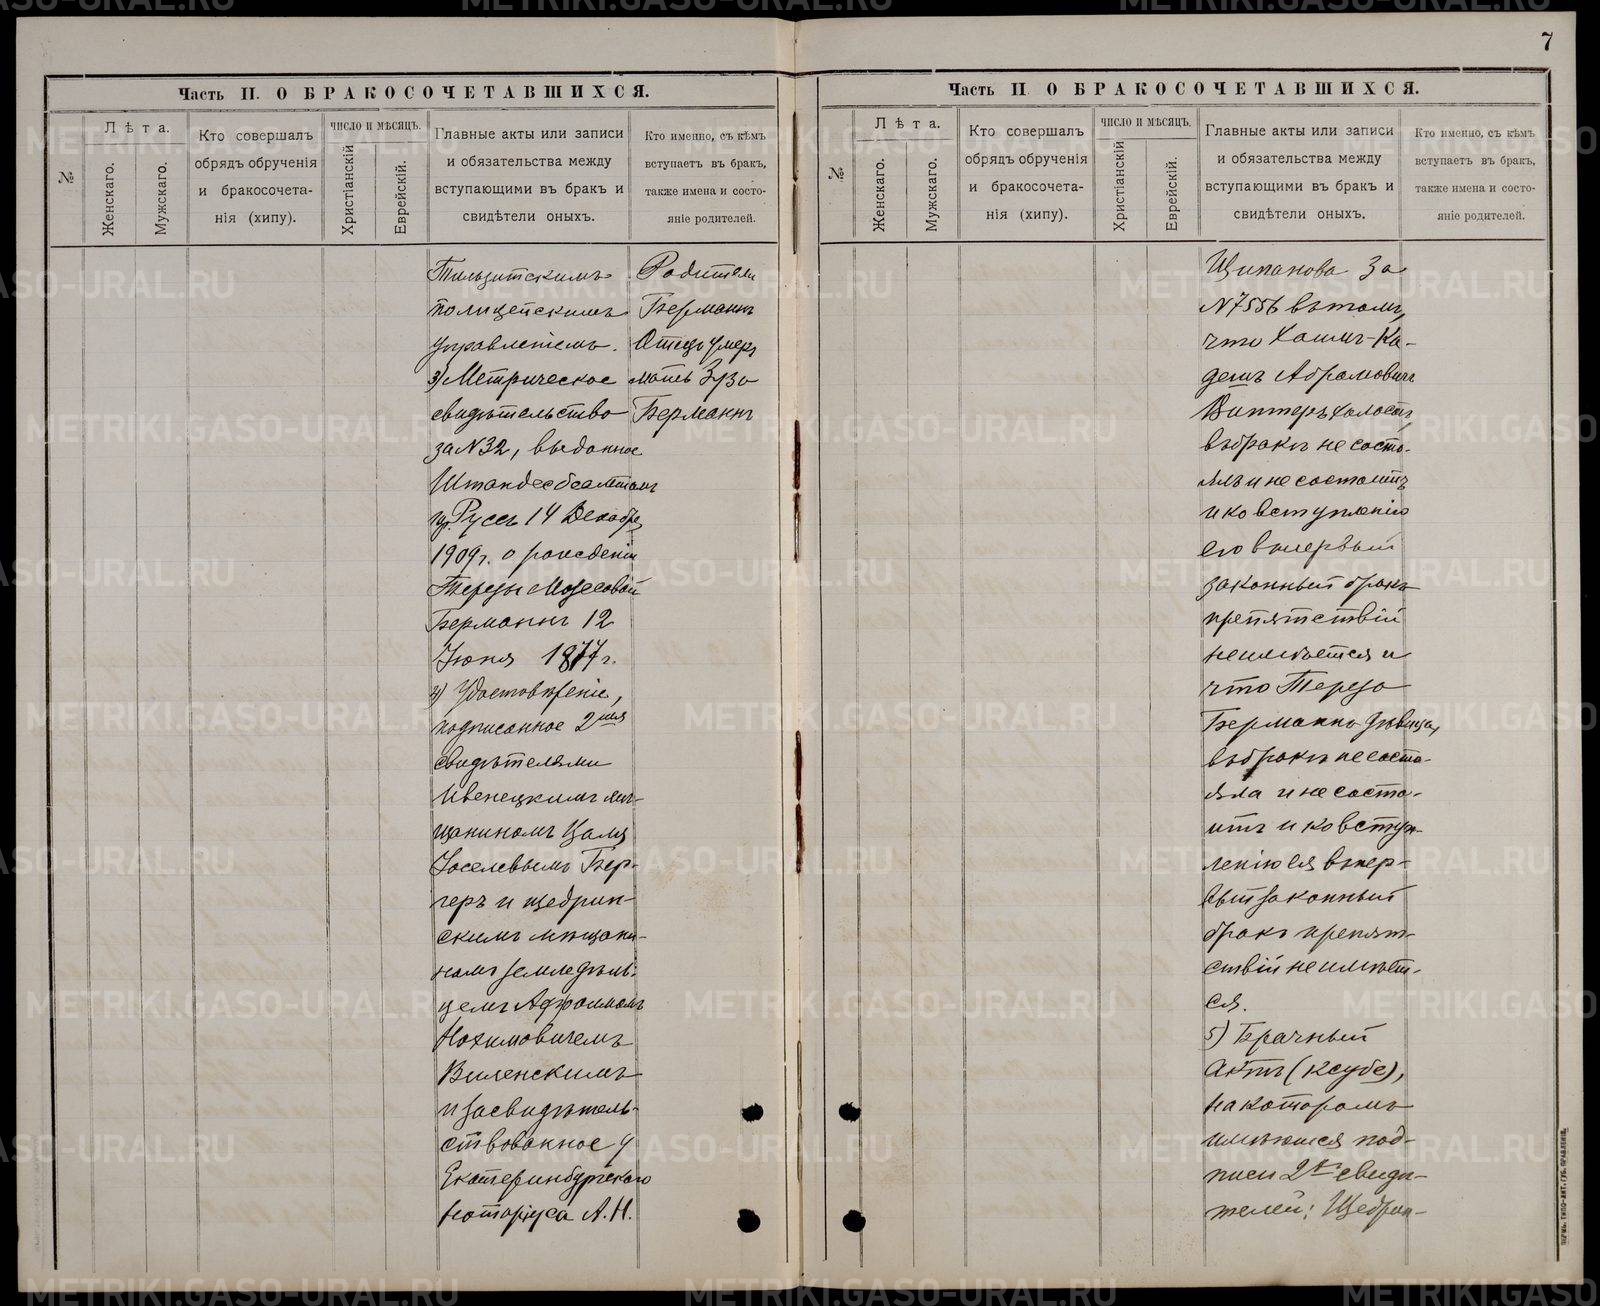 7
Часть II. О БРАКОСОЧЕТАВШИХСЯ.
№
Лѣта.
Женскаго.
Мужскаго.
Кто совершалъ
обрядъ обрученія
и бракосочета-
нія (хипу).
число и мѣсяцъ.
Христіанскій
Еврейскій.
Главные акты или записи
и обязательства между
вступающими въ бракъ и
свидѣтели оныхъ.
Кто именно, съ кѣмъ
вступаетъ въ бракъ,
также имена и состо-
яніе родителей.
Тильзитскимъ
полицейскимъ
управленіемъ.
3) Метрическое
свидѣтельство
за N32, выданное
Штандесбеамтомъ
гр. Руссъ 14 Декабря
1909 г. о рожденіи
Терезы Мозесовой
Берманнъ 12
Іюня 1877 г.
4) Удостовѣреніе,
подписанное 2мя
свидѣтелями
Ивенецкимъ мѣ-
щаниномъ Цаля
Іоселевымъ Бер-
геръ и щедрин-
скимъ мѣщани-
номъ земледѣль-
цемъ
Нохимовичемъ
Виленскимъ
и засвидѣтель-
ствованное у
Екатеринбургскаго
нотаріуса А.Н.
Родители
Берманнъ
Отецъ умеръ
мать
Берманнъ
Часть II О БРАКОСОЧЕТАВШИХСЯ.
№
Лѣта.
Женскаго.
Мужскаго.
Кто совершалъ
обрядъ обрученія
и бракосочета-
нія (хипу).
число и мѣсяцъ.
Христіанскій
Еврейскій.
Главные акты или записи
и обязательства между
вступающими въ бракъ и
свидѣтели оныхъ.
Кто именно, съ кѣмъ
вступаетъ въ бракъ,
также имена и состо-
яніе родителей.
Щипанова за
N7556 въ томъ,
что Хаимъ-Ка-
дешъ Абрамовичъ
Винтеръ холостъ,
въ бракѣ не состо-
ялъ и не состоитъ
и ко вступленію
его въ первый
законный бракъ
препятствій
не имѣется и
что Тереза
Берманнъ дѣвица,
въ бракѣ не состо-
яла и не состо-
итъ и ко вступ-
ленію ея въ пер-
вый законный
бракъ препят-
ствій не имѣет-
ся.
5) Брачный
актъ (ксубе),
на которомъ
имѣются под-
писи 2хъ свидѣ-
телей: Щедрин-
ПЕРМЬ. ТИПО-ЛИТ. ГУБ. ПРАВЛЕНІЯ.
METRIKI.GASO-URAL.RU